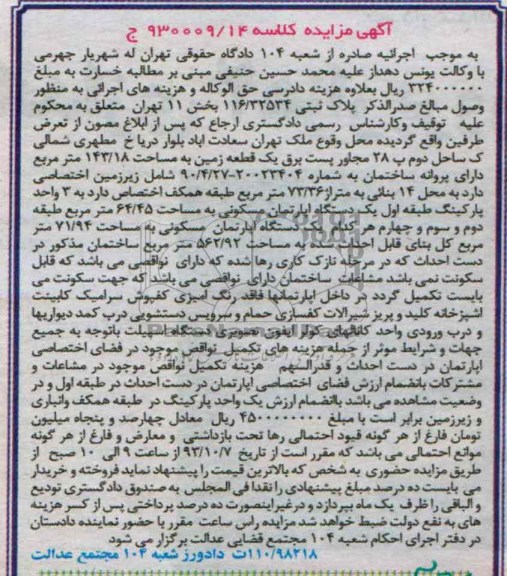 آگهی مزایده کلاسه ۹۳۰۰۰۹/۱۴ ج
به موجب اجرائیه صادره از شعبه ۱۰۴ دادگاه حقوقی تهران له شهریار جهرمی
با وکالت یونس دهداز علیه محمد حسین حنیفی مبنی بر مطالبه خسارت به مبلغ
۳۲۴۰۰۰۰۰۰ ریال بعلاوه هزینه دادرسی حق الوکاله و هزینه های اجرائی به منظور
وصول مبالغ صدرالذکر پلاک ثبتی ۱۱۶/۳۲۵۳۴ بخش ۱۱ تهران متعلق به محکوم
علیه توقیف وکارشناس رسمی دادگستری ارجاع که پس از ابلاغ مصون از تعرض
طرفین واقع گردیده محل وقوع ملک تهران سعادت اباد بلوار دریا خ مطهری شمالی
ک ساحل دوم پ ۲۸ مجاور پست برق یک قطعه زمین به مساحت ۱۴۳/۱۸ متر مربع
دارای پروانه ساختمان به شماره ۲۰۰۲۳۴۰۴-۹۰/۴/۲۷ شامل زیرزمین اختصاصی
دارد به محل ۱۴ بنائی به متراژ ۷۳/۳۶ متر مربع طبقه همکف اختصاص دارد به ۳ واحد
پارکینگ طبقه اول یک دستگاه اپارتمان مسکونی به مساحت ۶۴/۴۵ متر مربع طبقه
دوم و سوم و چهارم هر کدام یک دستگاه اپارتمان مسکونی به مساحت ۷۱/۹۴ متر
مربع کل بنای قابل احداث به مساحت ۵۶۲/۹۲ متر مربع ساختمان مذکور در
دست احداث که در مرحله نازک کاری رها شده که دارای نواقصی می باشد که قابل
سکونت نمی باشد مشاعات ساختمان دارای نواقصی می باشد که جهت سکونت می
بایست تکمیل گردد در داخل اپارتمانها فاقد رنگ امیزی کفپوش سرامیک کابینت
اشپزخانه کلید و پریز شیرالات کفسازی حمام و سرویس دستشویی درب کمد دیواریها
و درب ورودی واحد کانالهای کولر ایفون تصویری دستگاه باتوجه به جمیع
جهات و شرایط موثر از جمله هزینه های تکمیل نواقص موجود در فضای اختصاصی
اپارتمان در دست احداث و قدرالسهم هزینه تکمیل نواقص موجود در مشاعات و
مشترکات بانضمام ارزش فضای اختصاصی اپارتمان در دست احداث در طبقه اول و در
وضعیت مشاهده می باشد باانضمام ارزش یک واحد پارکینگ در طبقه همکف وانباری
و زیرزمین برابر است با مبلغ ۴۵۰۰۰۰۰۰۰۰ ریال معادل چهارصد و پنجاه میلیون
تومان فارغ از هر گونه قیود احتمالی رها تحت بازداشتی و معارض و فارغ از هر گونه
موانع احتمالی می باشد که مقرر است از تاریخ ۹۳/۱۰/۷ از ساعت ۹ الی ۱۰ صبح از
طریق مزایده حضوری به شخص که بالاترین قیمت را پیشنهاد نماید فروخته و خریدار
می بایست ده درصد مبلغ پیشنهادی را نقدا فی المجلس به صندوق دادگستری تودیع
و الباقی را ظرف یک ماه بپردازد و درغیر اینصورت ده درصد پرداختی پس از کسر هزینه
های به نفع دولت ضبط خواهد شد مزایده راس ساعت مقرر با حضور نماینده دادستان
در دفتر اجرای احکام شعبه ۱۰۴ مجتمع قضایی عدالت برگزار می شود
۱۱۰/۹۸۲۱۸ت دادورز شعبه ۱۰۴ مجتمع عدالت